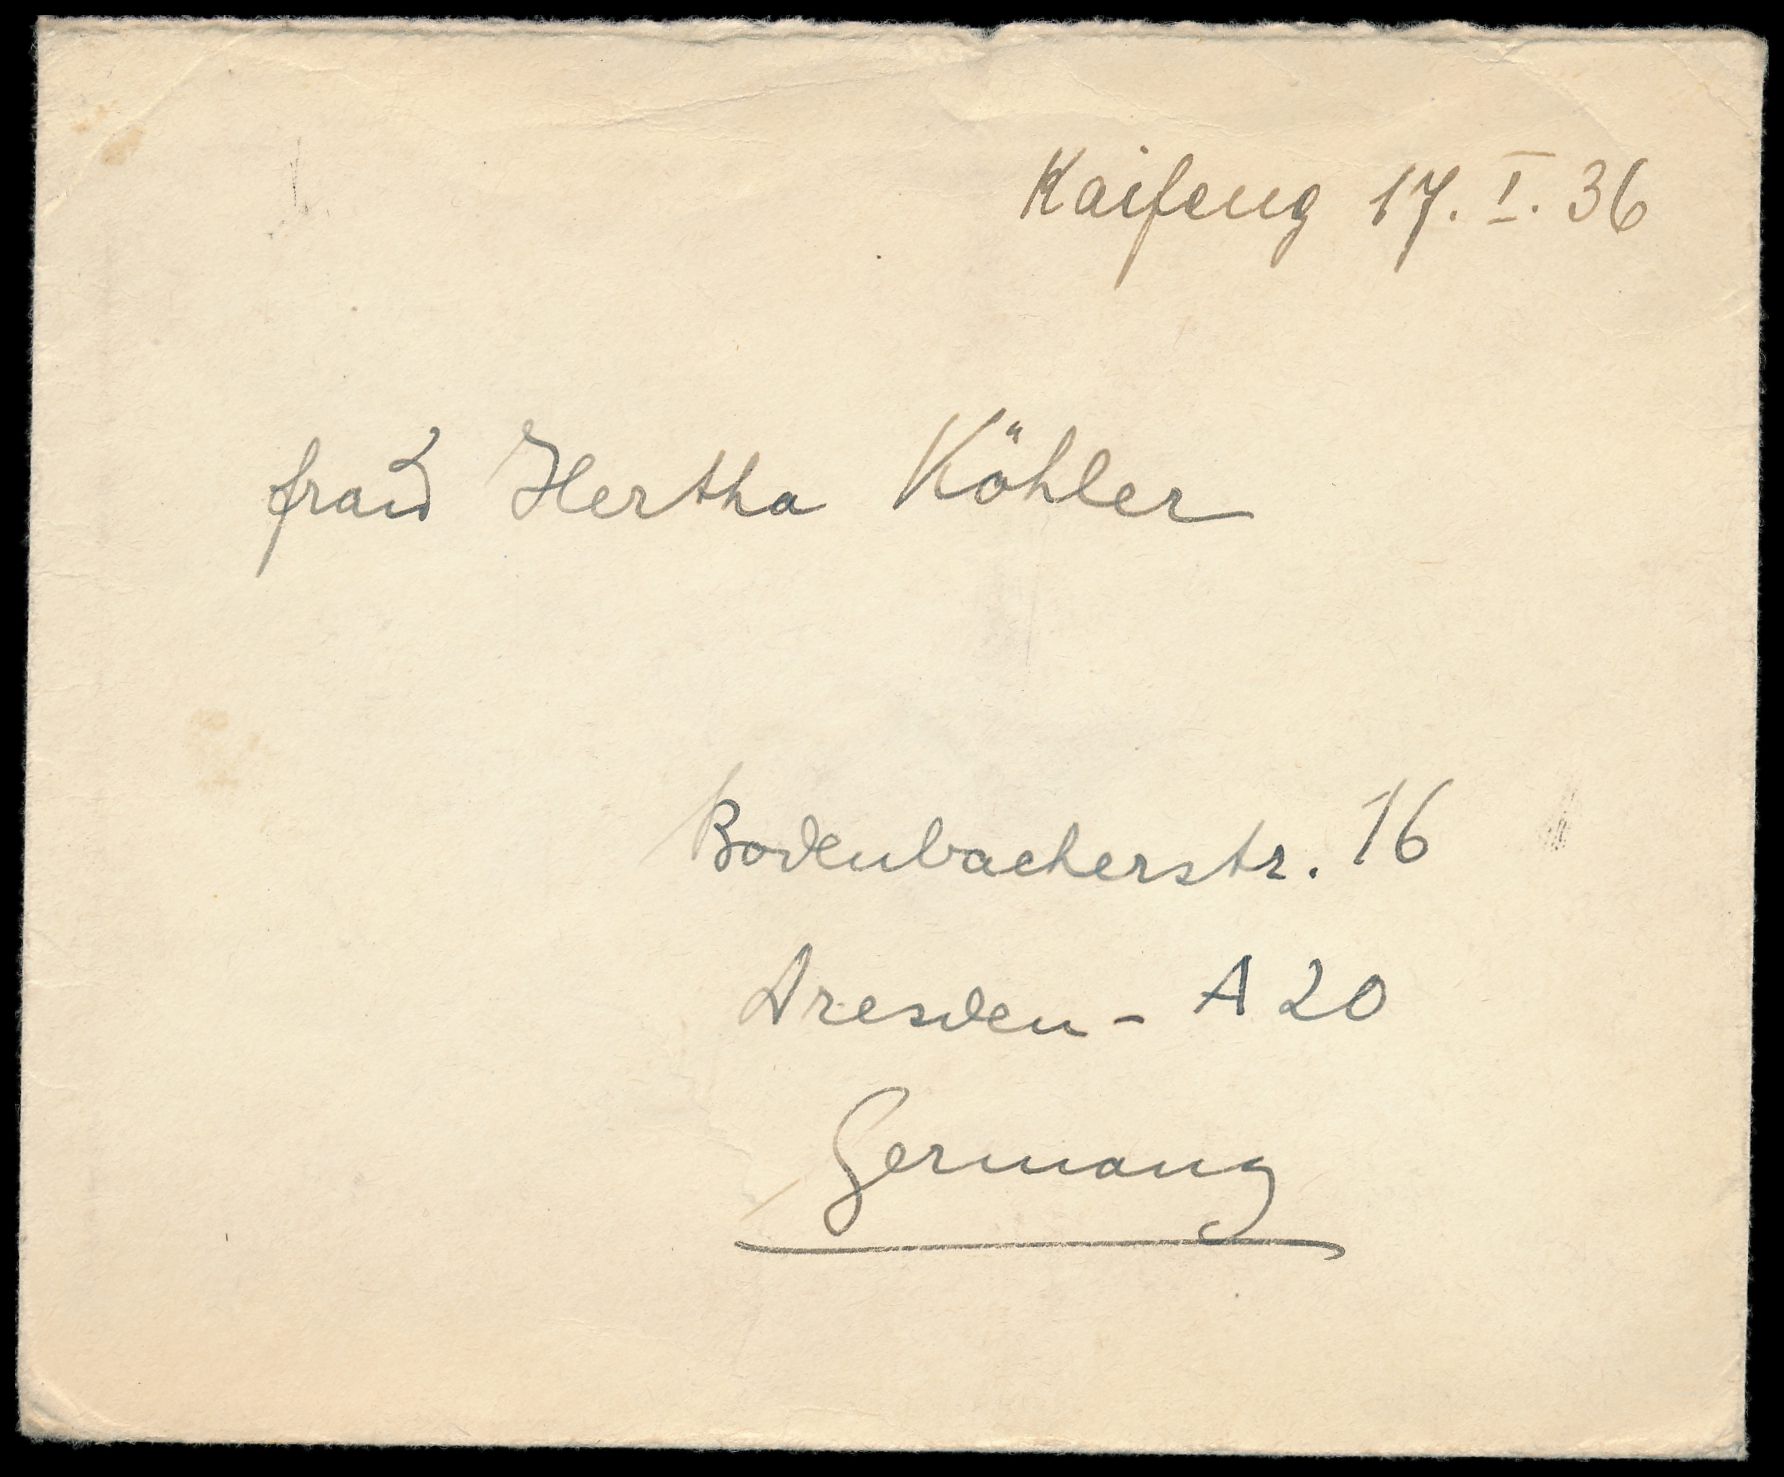 Kaifeng 17. I. 36
Frau Hertha Köhler
Bodenbacherstr. 16
Dresden - A 20
Germany